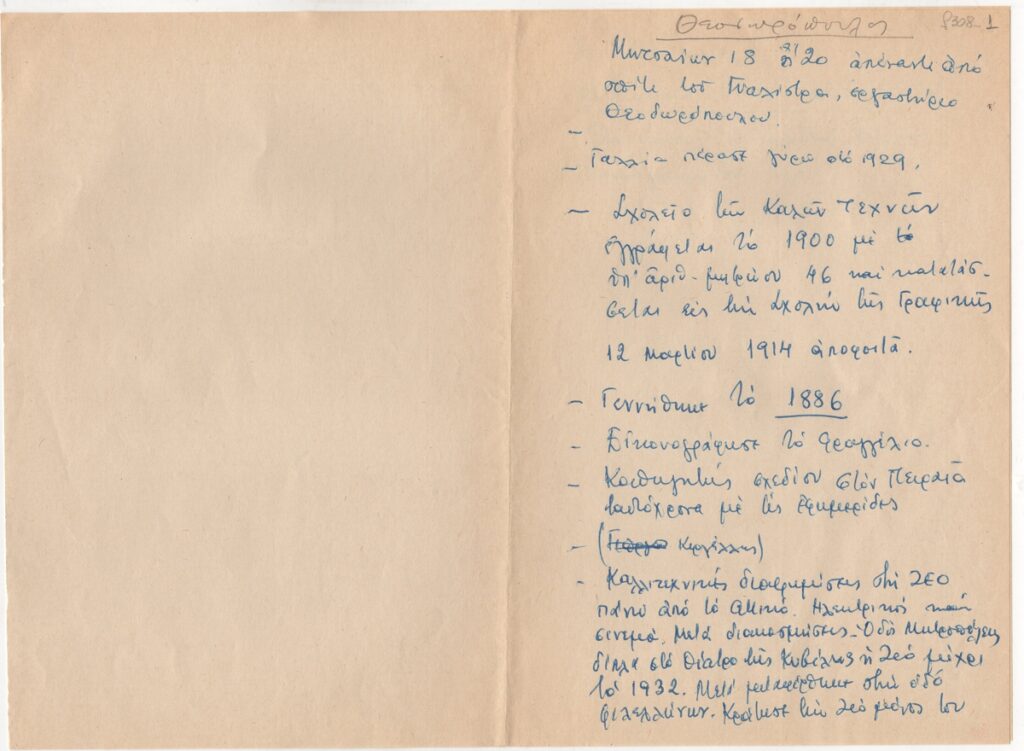 Θεοδωρόπουλος
φ308-1
Μητσαίων 18 ἤ 20 ἀπέναντι ἀπό
σπίτι τοῦ Γυαλίστρα, ἐργαστήριο
Θεοδωρόπουλου.
–
– Γαλλία πέρασε γύρω στό 1929.
– Σχολεῖο τῶν Καλῶν Τεχνῶν
ἐγγράφεται τό 1900 μέ τό
ὑπ' ἀριθ. μητρώου 46 καί κατατάσ-
σεται εἰς τήν Σχολήν τῆς Γραφικῆς
12 Μαρτίου 1914 ἀποφοιτᾶ.
– Γεννήθηκε τό 1886
– Εἰκονογράφησε τό Φραγγέλιο.
– Καθηγητής σχεδίου στόν Πειραιᾶ
ταυτόχρονα μέ τίς ἐφημερίδες
– (
– Καλλιτεχνικές διαφημίσεις στή ΖΕΟ
πάνω ἀπό τό Ἀττικό. Ἠλεκτρικός καί
σινεμά. Μετά διακοσμήσεις – Ὁδό Μητροπόλεως
δίπλα στό θέατρο τῆς Κυβέλης ἡ Ζεό μέχρι
τό 1932. Μετά μεταφέρθηκε στήν ὁδό
Φιλελλήνων. Κράτησε τήν Ζεό μόνος του